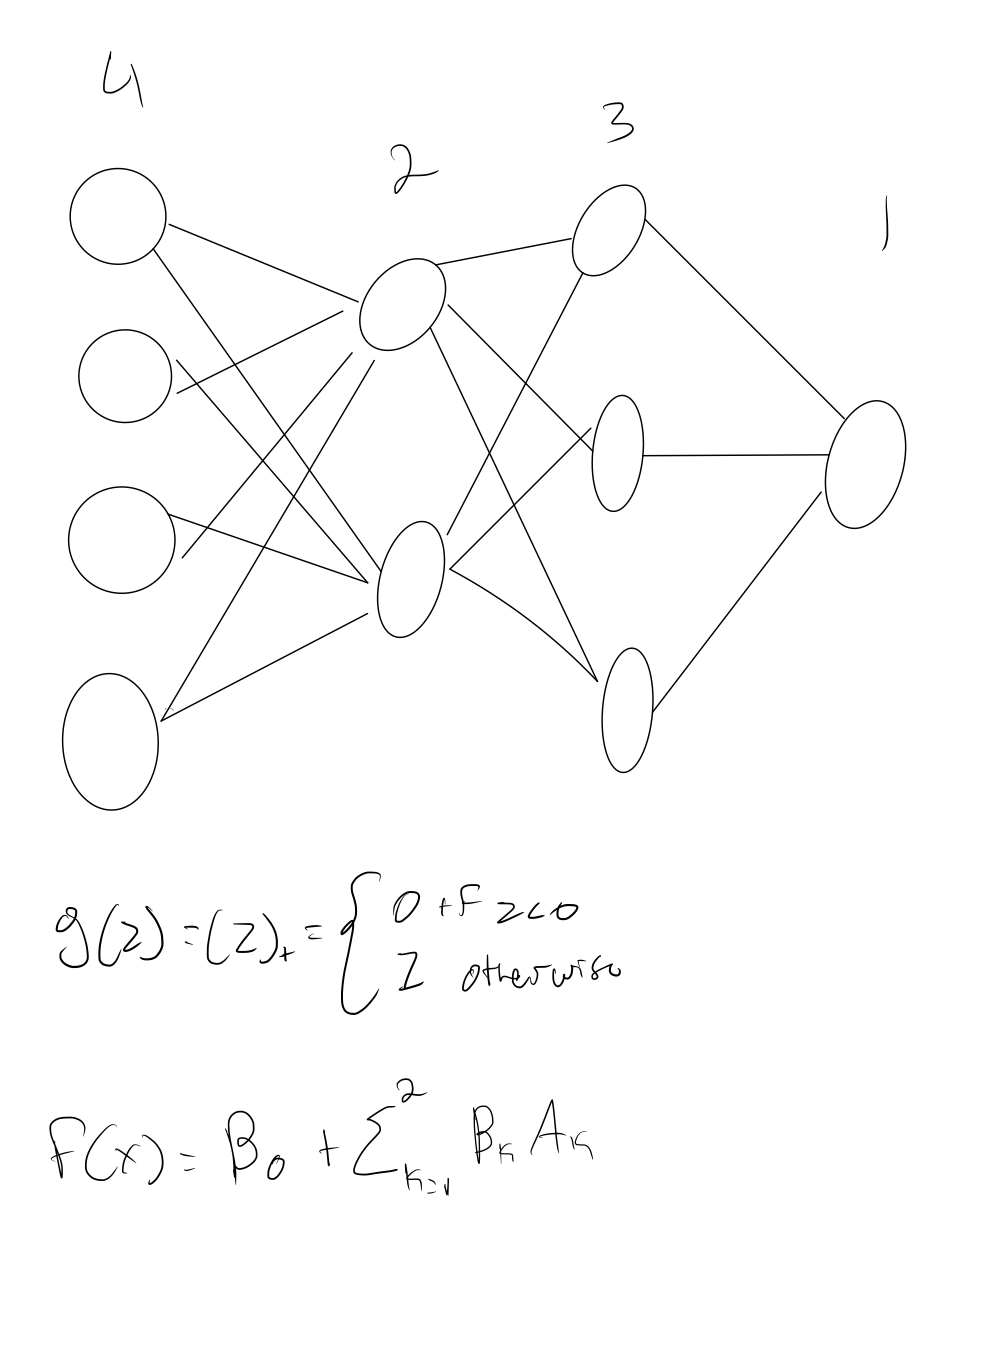 4
2
3
1
g(z) = (z)₊ = { 0 if z<0
z otherwise
F(x) = β₀ + Σ²ₖ₌₁ βₖ Aₖ